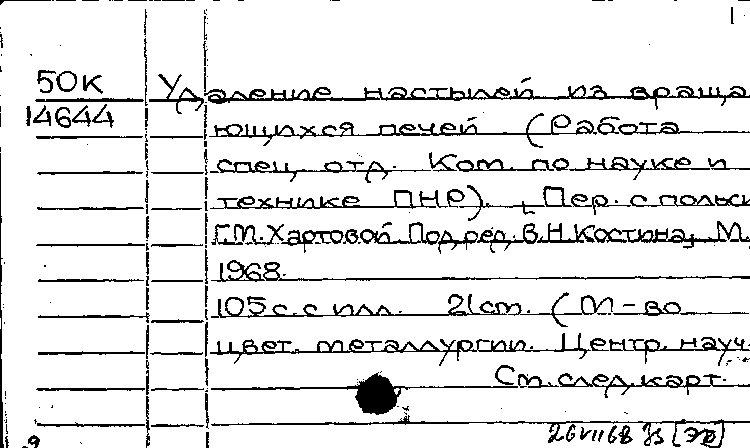 50к Удаление настылей из враща
14644 ющихся печей (Работа
спец. отд. Ком. по науке и
технике ПНР). Пер. с польск
Г.М.Хартовой. Под ред. В.Н.Костина, М.,
1968.
105 с. с илл. 21 cm. (М-во
цвет. металлургии. Центр. науч
См. след. карт.